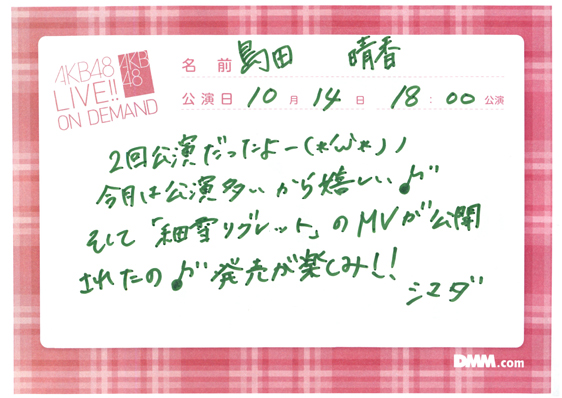 AKB48
LIVE!!
ON DEMAND
AKB
48
名前 島田 晴香
公演日 10月 14日 18:00 公演
2回公演だったよー(*´ω`*)ノ
今月は公演多いから嬉しい♪
そして「細雪リグレット」のMVが公開
されたの♪ 発売が楽しみ!!
シマダ
DMM.com